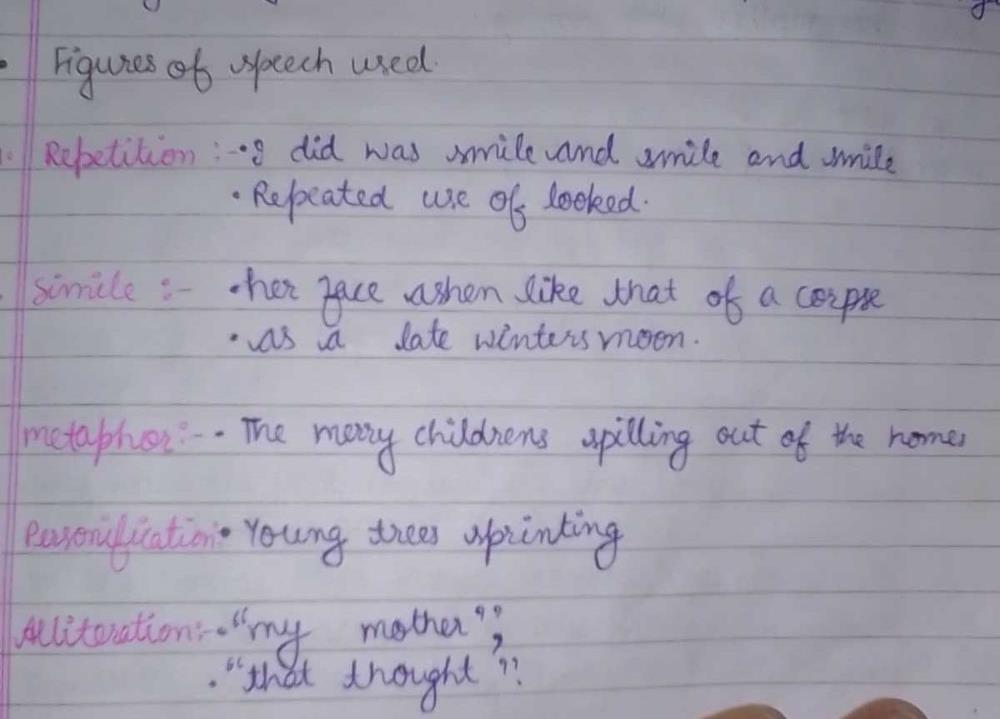 Figures of speech used.
Repetition :- • I did was smile and smile and smile
• Repeated use of looked.
Simile :- • her face ashen like that of a corpse
• as a late winters moon.
metaphor :- • The merry childrens spilling out of the homes
Personification • Young trees sprinting
Alliteration :- • "my mother",
• "that thought"